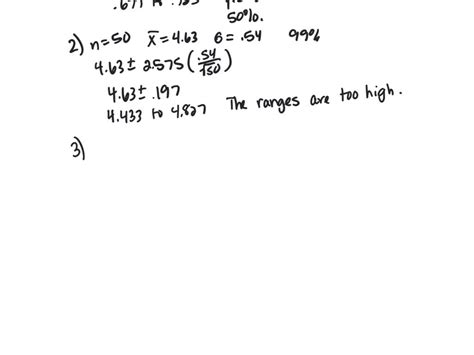 50%.
2) n=50 x̄=4.63 6=.54 99%
4.63 ± 2.575 (.54/√50)
4.63 ± .197
4.433 to 4.827 The ranges are too high.
3)